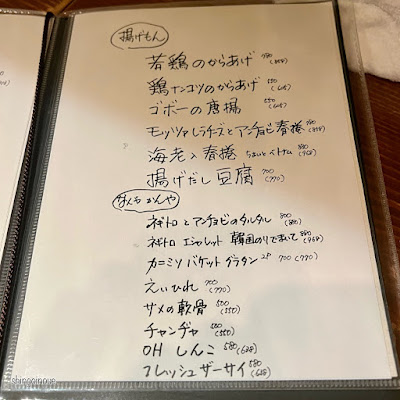 揚げもん
若鶏のからあげ 780 (858)
鶏ナンコツのからあげ 550 (605)
ゴボーの唐揚 550 (605)
モッツァレラチーズとアンチョビ春捲 780 (858)
海老入春捲 ちょいとベトナム 880 (968)
揚げだし豆腐 700 (770)
なんちゃかんや
ネギトロとアンチョビのタルタル 800 (880)
ネギトロ エシャレット 韓国のりでまいて 880 (968)
カニミソ バケットグラタン 2P 700 (770)
えいひれ 700 (770)
サメの軟骨 500 (550)
チャンヂャ 500 (550)
OH しんこ 580 (638)
フレッシュザーサイ 580 (638)